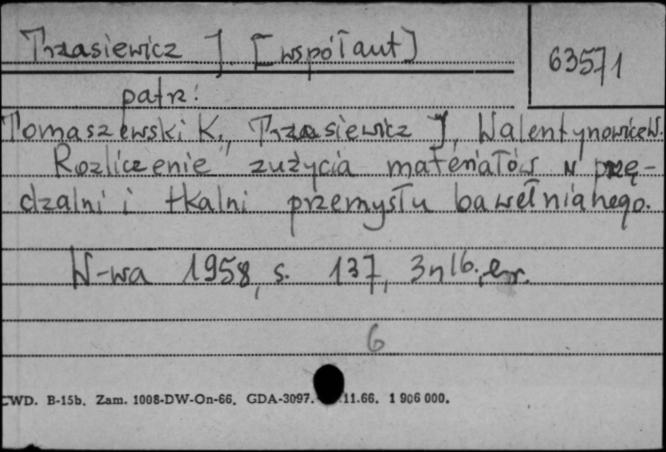 Trzasiewicz J. [współaut]
63571
patrz:
Tomaszewski K., Trzasiewicz J, Walentynowicz W.
Rozliczenie zużycia materiałów w przę-
dzalni i tkalni przemysłu bawełnianego.
W-wa 1958, s. 137, 3 nlb.,
6
CWD. B-15b. Zam. 1008-DW-On-66. GDA-3097. .11.66. 1 906 000.